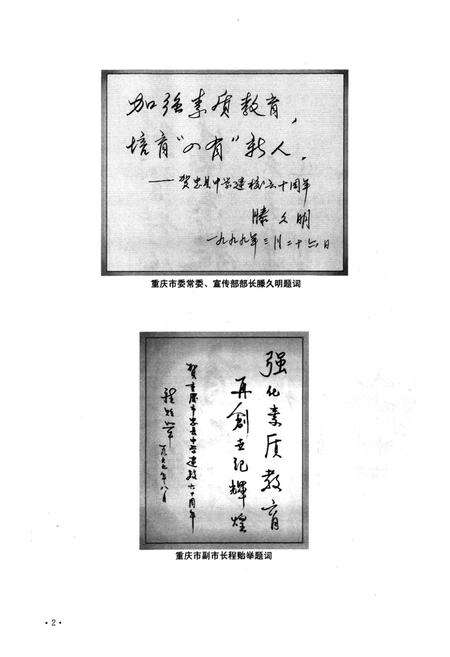 加强素质教育，
培育“四有”新人．
——贺忠县中学建校六十周年
滕久明
一九九九年三月二十六日
重庆市委常委、宣传部部长滕久明题词
强化素质教育
再创世纪辉煌
贺重庆市忠县中学建校六十周年
程贻举
一九九九年八月
重庆市副市长程贻举题词
·2·